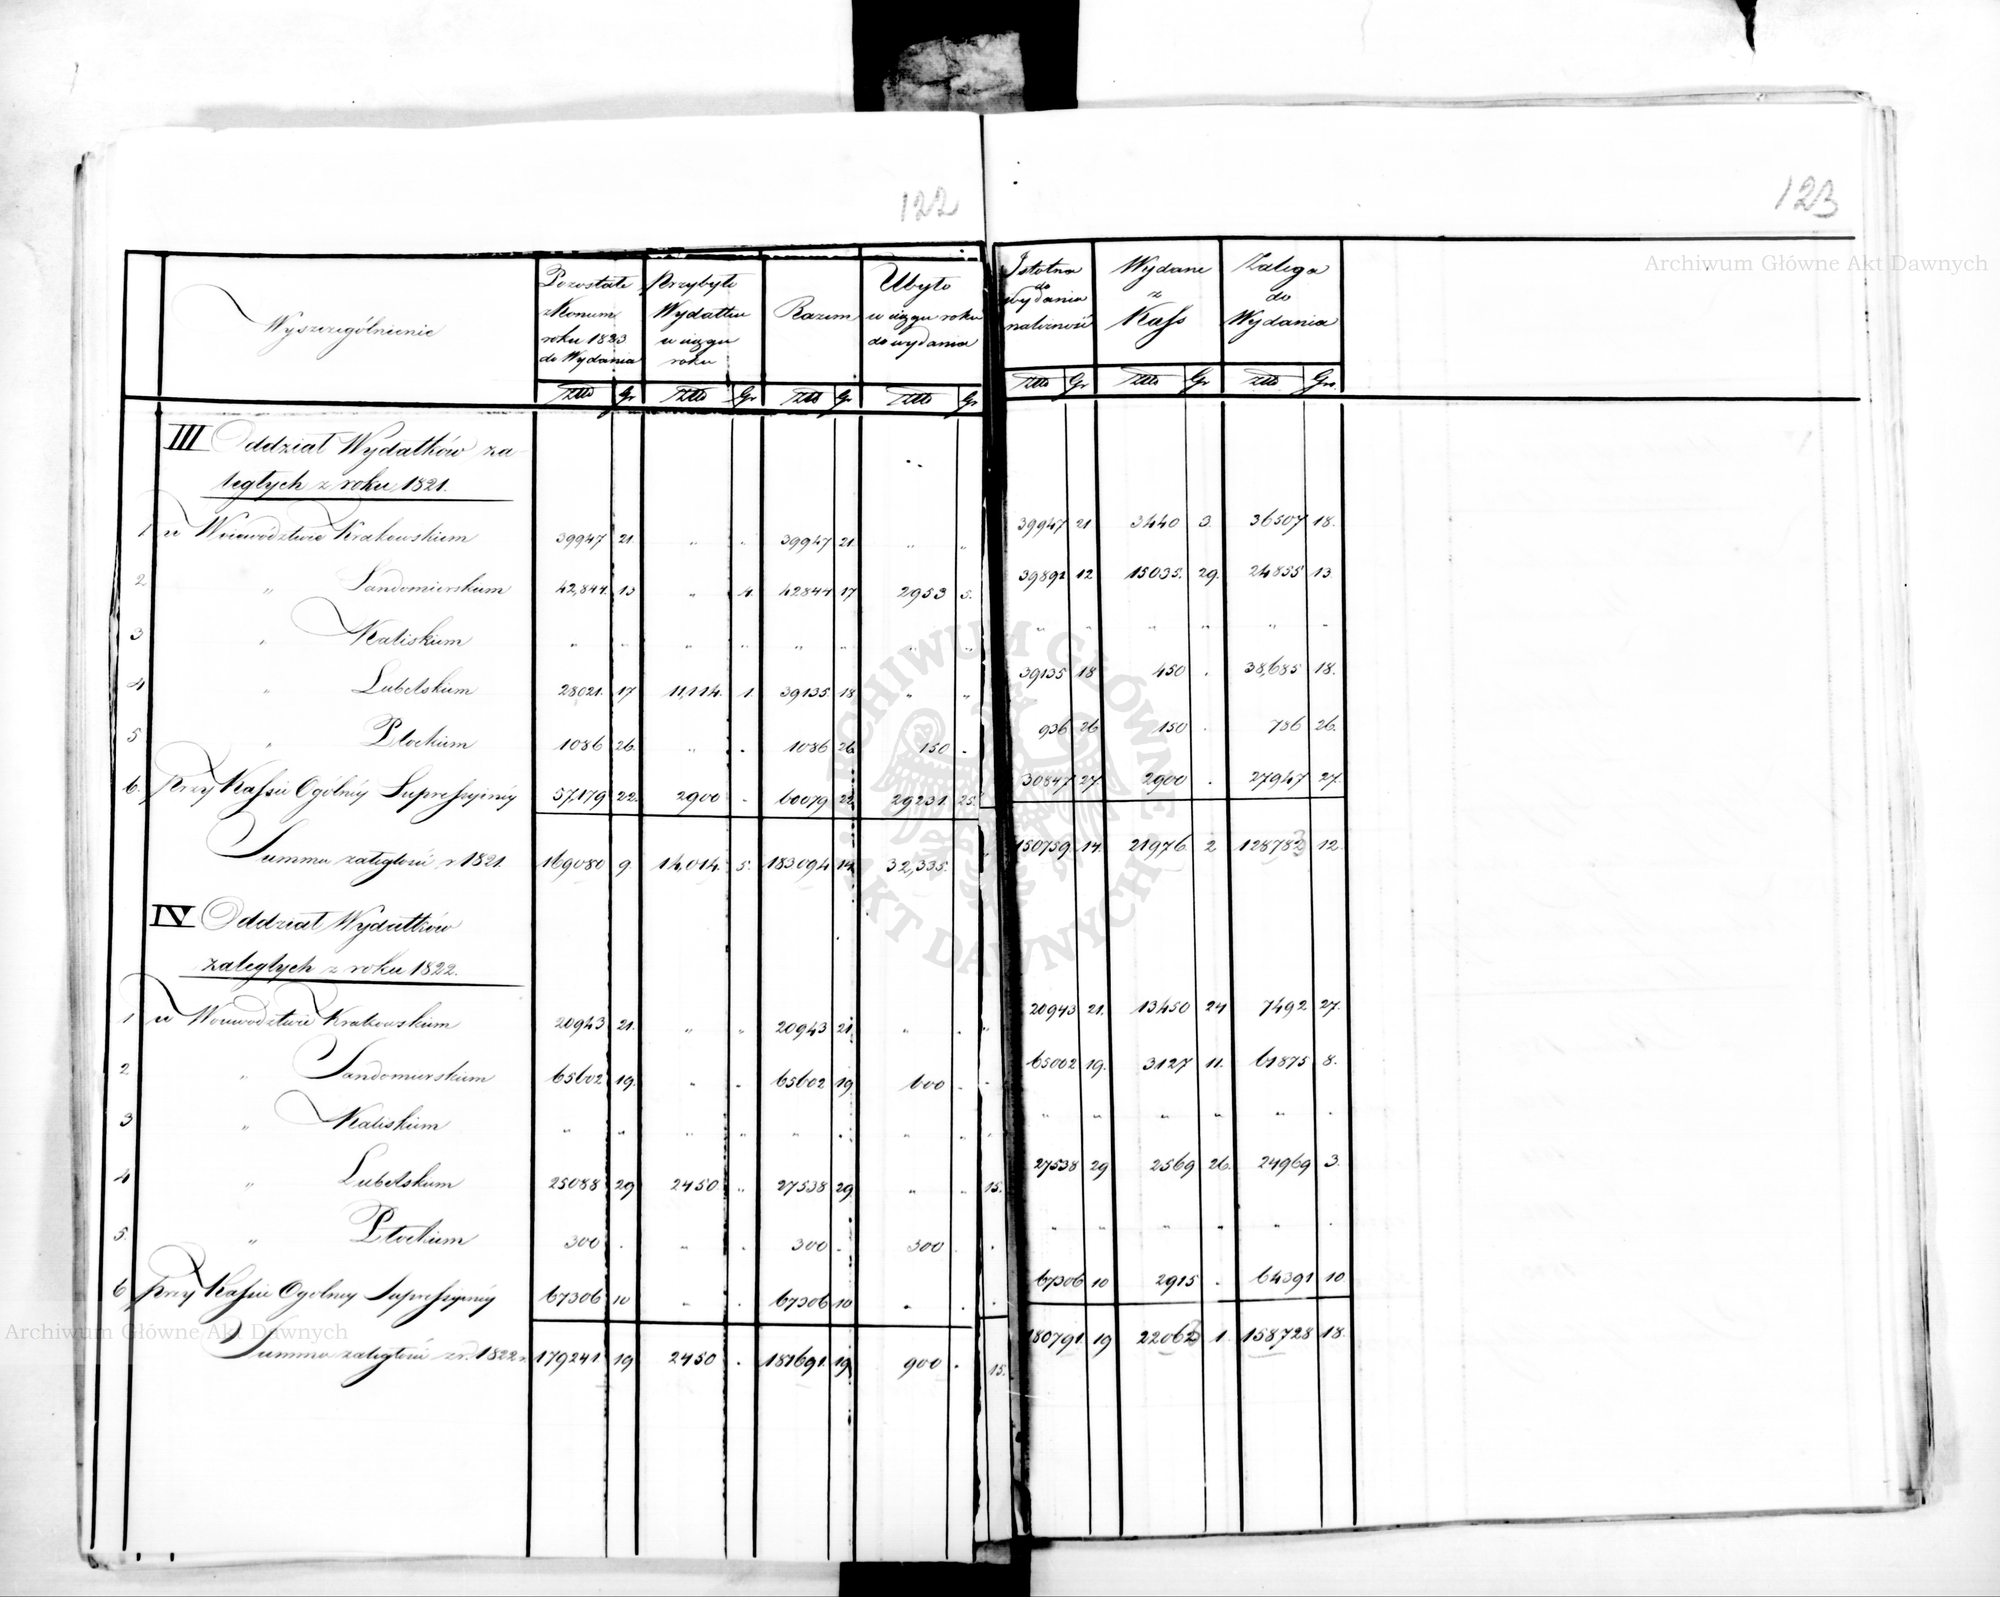 122
123
Wyszczególnienie
Pozostało z końcem roku 1823 do Wydania
Przybyło Wydatku w ciągu roku
Razem
Ubyło w ciągu roku do wydania
Istotna do wydania należność
Wydano z Kass
Zalega do Wydania
Złto Gr Złto Gr Złto Gr Złto Gr Złto Gr Złto Gr Złto Gr.
III Oddział Wydatków za-
ległych z roku 1821.
1 w Woiewództwie Krakowskiem 39947 21 „ „ 39947 21 „ „ 39947 21 3440 3. 36507 18.
2 „ Sandomierskiem 42,844 13 „ 4. 42844 17 2953 5. 39891 12 15035. 29. 24855 13.
3 „ Kaliskiem „ „ „ „ „ „ „ „ „ „ „ „ „ „
4 „ Lubelskiem 28021. 17 11,114. 1. 39135. 18 „ „ 39135 18 450 . 38,685 18.
5 „ Płockiem 1086 26. „ . 1086 26 150 . 936 26 150 . 786 26.
6. przy Kassie Ogólnéy Supressyinéy 57,179 22. 2900 . 60079 22 29231. 25. 30847 27. 2900 . 27947 27.
Summa zaległości z 1821. 169080 9. 14,014. 5. 183094 14 32,335. „ 150759 14. 21976. 2 128783 12.
IV Oddział Wydatków
zaległych z roku 1822.
1 w Woiewodztwie Krakowskiem 20943 21. „ „ 20943 21 „ . „ 20943 21. 13450 24 7492 27.
2 „ Sandomierskiem 65602 19. „ . 65602 19 600 . 65002 19. 3127 11. 61875 8.
3 „ Kaliskiem „ „ „ „ „ . „ „ „ „ „ „ „ .
4 „ Lubelskiem 25088 29 2450 „ 27538 29 „ „ 15. 27538 29 2569 26. 24969 3.
5. „ Płockiem 300 . „ . 300 . 300 . . „ „ „ „ „ .
6 przy Kassie Ogolney Supressyiney 67306 10 „ . 67306 10 „ . . 67306 10 2915 . 64391 10
Summa zaległości z r. 1822 r. 179241. 19 2450 . 181691. 19 900 . 15. 180791. 19 22063 1. 158728 18.
Archiwum Główne Akt Dawnych
Archiwum Główne Akt Dawnych
ARCHIWUM GŁÓWNE AKT DAWNYCH